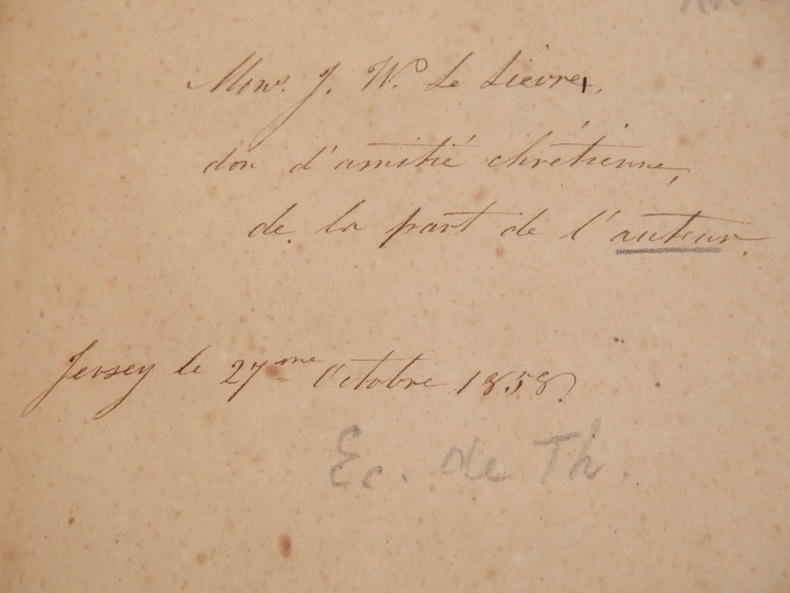 Mons. J. Wo. Le Lievre,
don d'amitié chrétienne,
de la part de l'auteur.
Jersey le 27me Octobre 1858.
Ec. de Th.